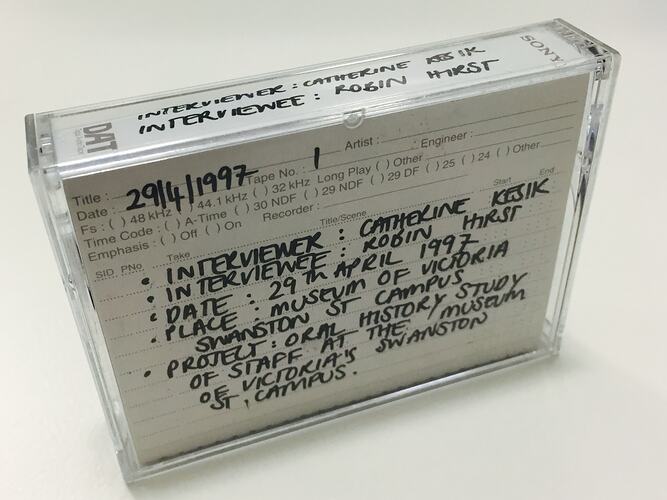 INTERVIEWER : CATHERINE KESIK
INTERVIEWEE : ROBIN HIRST
SONY
DAT
Title :
Artist : Engineer :
Date : 29/4/1997 Tape No. : 1
Fs : ( ) 48 kHz ( ) 44.1 kHz ( ) 32 kHz Long Play ( ) Other
Time Code : ( ) A-Time ( ) 30 NDF ( ) 29 NDF ( ) 29 DF ( ) 25 ( ) 24 ( ) Other
Emphasis : ( ) Off ( ) On Recorder :
SID PNo Take Title/Scene Start End
• INTERVIEWER : CATHERINE KESIK
• INTERVIEWEE : ROBIN HIRST
• DATE : 29TH APRIL 1997
• PLACE : MUSEUM OF VICTORIA
SWANSTON ST CAMPUS
• PROJECT : ORAL HISTORY STUDY
OF STAFF AT THE MUSEUM
OF VICTORIA'S SWANSTON
ST. CAMPUS.